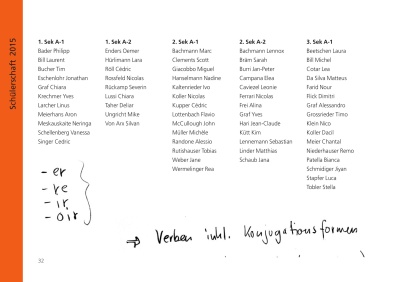 Schülerschaft 2015
1. Sek A-1
Bader Philipp
Bill Laurent
Bucher Tim
Eschenlohr Jonathan
Graf Chiara
Kirechmer Yves
Larcher Linus
Meierhans Aron
Meskauskaite Neringa
Schellenberg Vanessa
Singer Cedric
1. Sek A-2
Enders Demer
Hürlimann Lara
Röll Cédric
Rossfeld Nicolas
Rückamp Severin
Lussi Chiara
Taher Deliar
Ungricht Mike
Von Arx Silvan
2. Sek A-1
Bachmann Marc
Clements Scott
Giacobbo Miguel
Hanselmann Nadine
Kaltenrieder Ivo
Koller Nicolas
Kupper Cédric
Lottenbach Flavio
McCullough John
Müller Michèle
Randone Alessio
Rutishauser Tobias
Weber Jane
Wermelinger Rea
2. Sek A-2
Bachmann Lennox
Bräm Sarah
Burri Jan-Peter
Campana Elea
Caviezel Leonie
Ferrari Nicolas
Frei Alina
Graf Yves
Hari Jean-Claude
Kütt Kim
Lennemann Sebastian
Linder Matthias
Schaub Jana
3. Sek A-1
Beetschen Laura
Bill Michel
Cotar Lea
Da Silva Matteus
Farid Nour
Flick Dimitri
Graf Alessandro
Grossrieder Timo
Klein Nico
Koller Dacil
Meier Chantal
Niederhauser Remo
Patella Bianca
Schmidiger Jiyan
Stapfer Luca
Tobler Stella
- er
- re
- ir
- oir
⇒ Verben inkl. Konjugationsformen
32